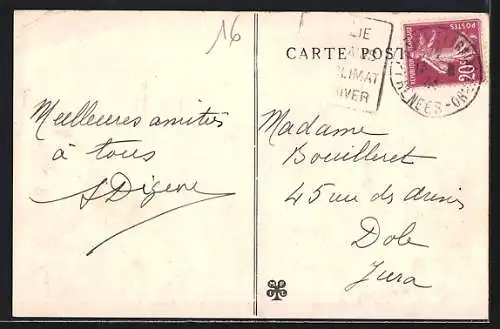 16
CARTE POST
LIE
CLIMAT
HIVER
POSTES
REPUBLIQUE FRANCAISE
20c
PYRENEES-OR
Meilleures amitiés
à tous
Madame
Bouilleret
45 rue des
Dole
Jura